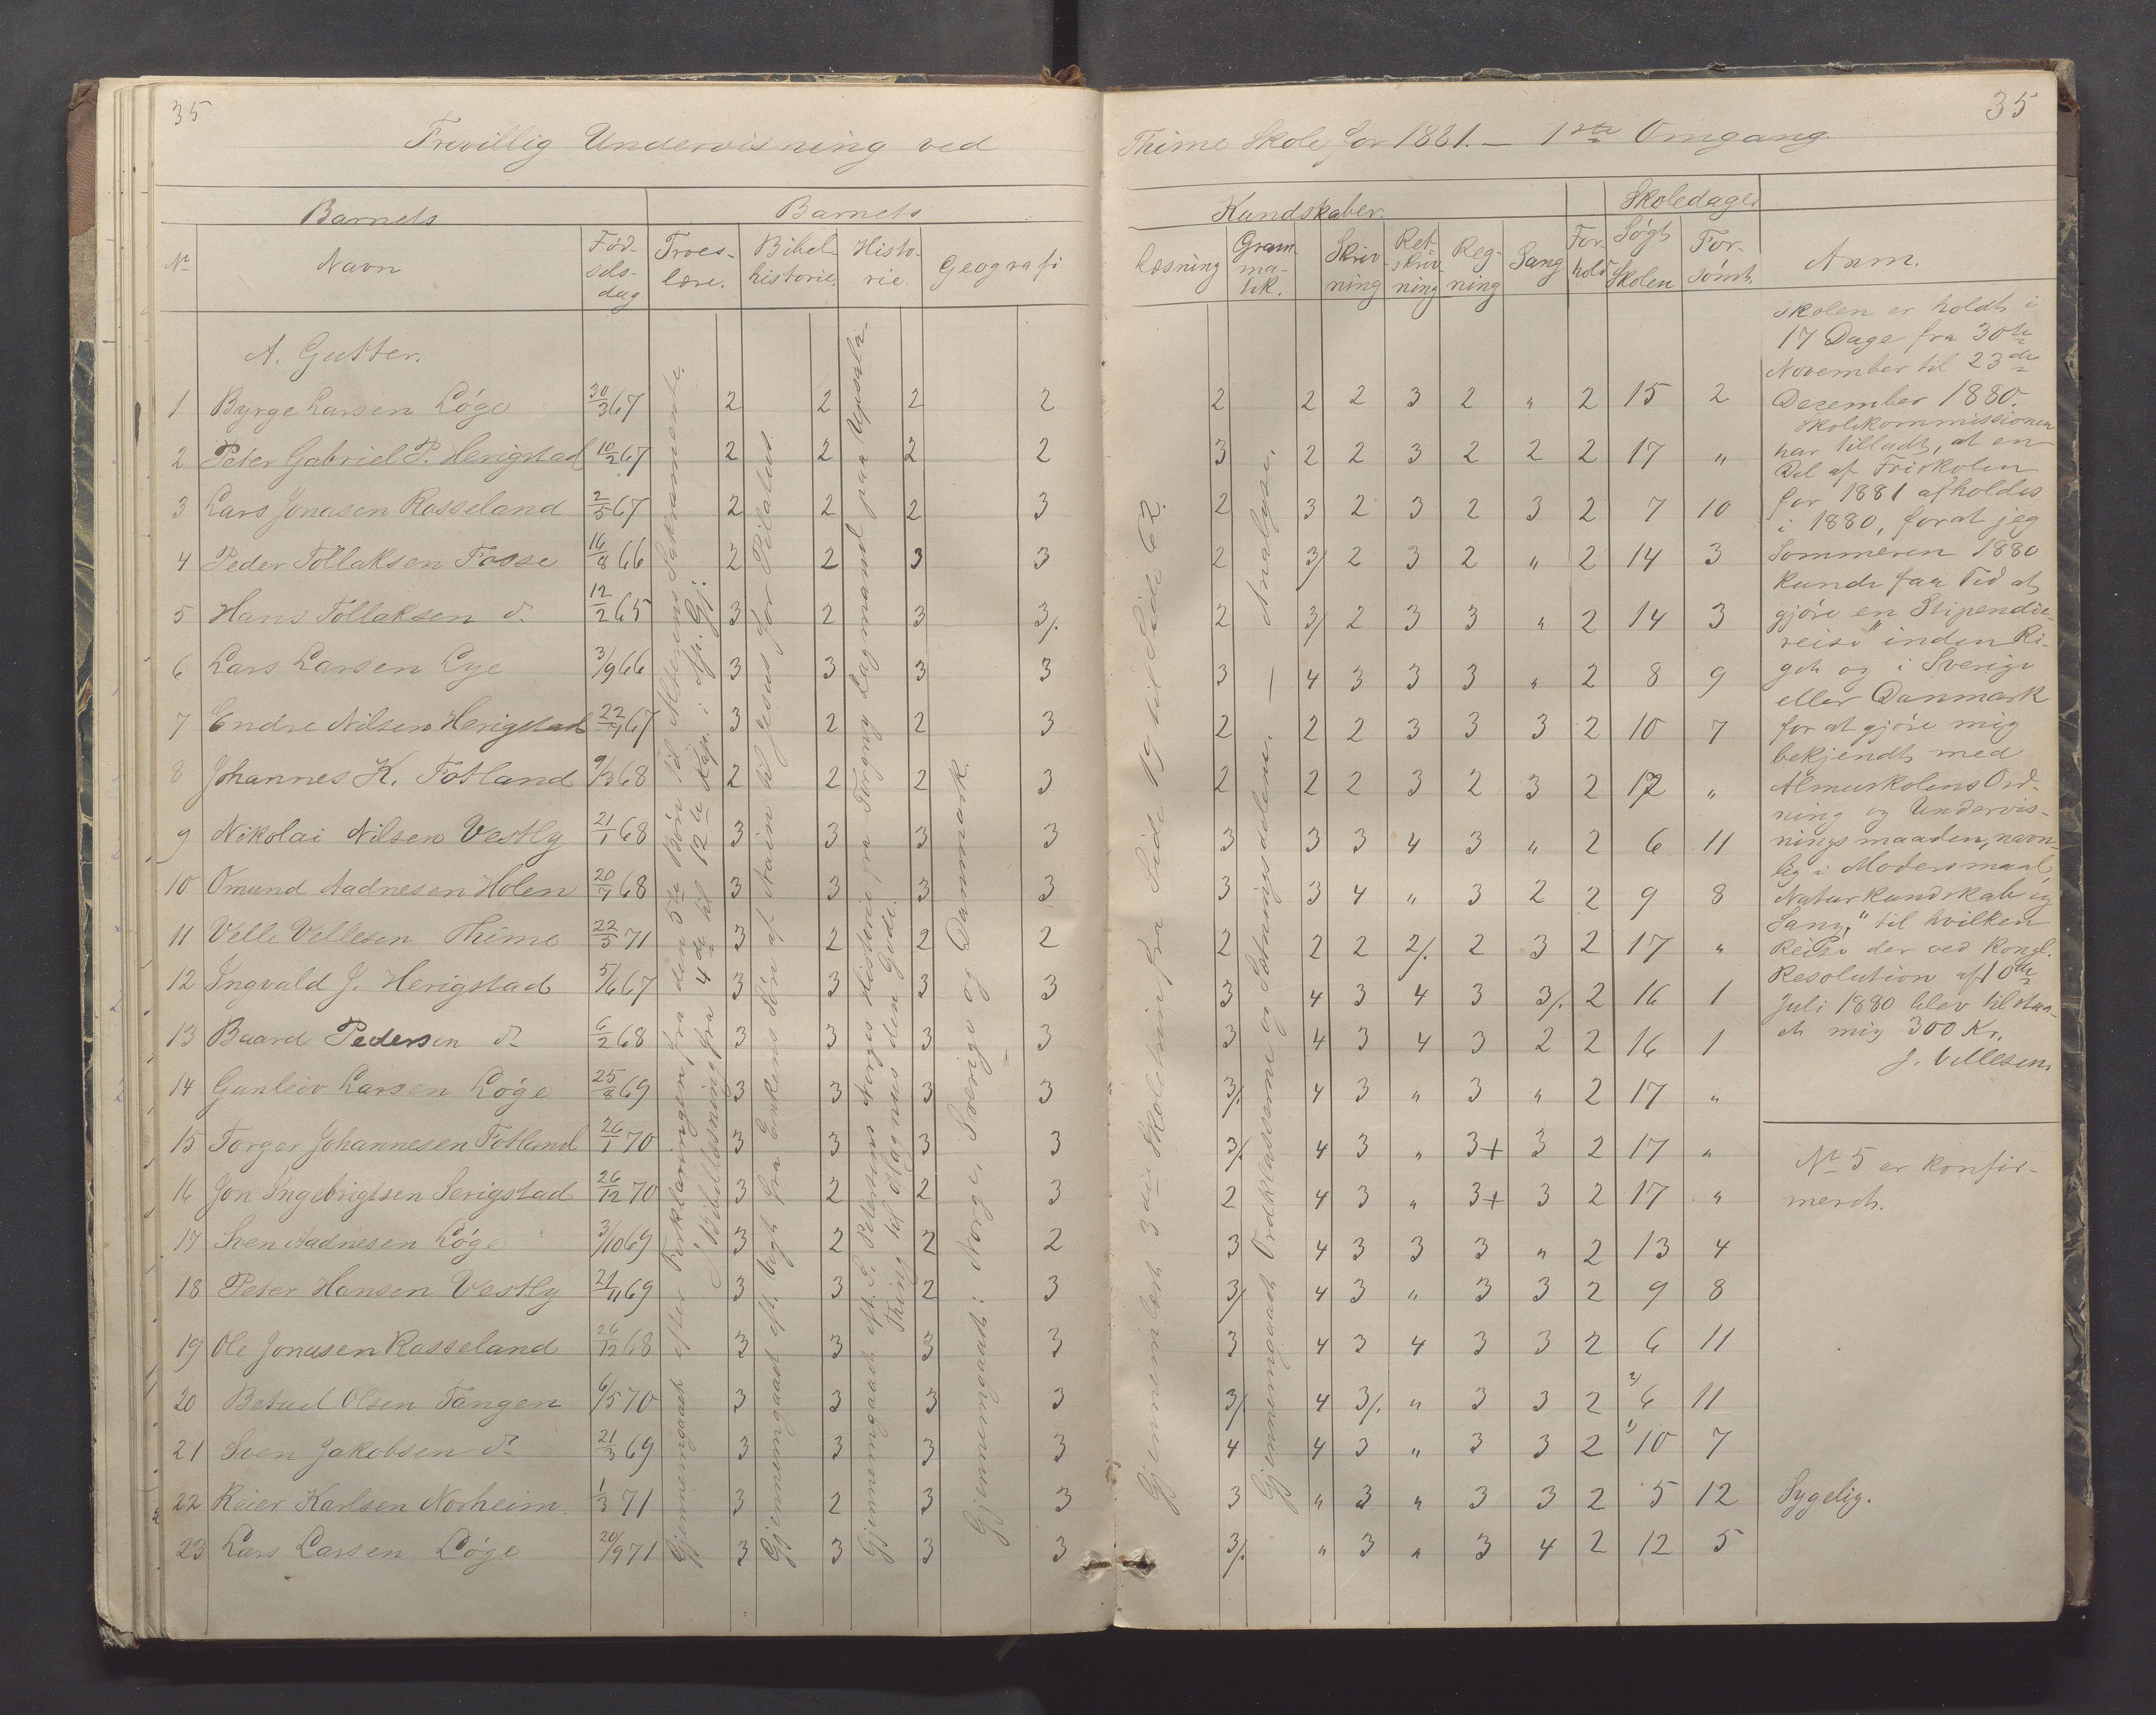 35
35
Frivillig Undervisning ved Thime Skole for 1881. — 1ste Omgang.
Barnets Barnets Kundskaber. Skoledage
No Navn Fødselsdag Troeslære. Bibelhistorie. Historie. Geografi Læsning Grammatik. Skrivning Retskrivning Regning Sang Forhold Søgt Skolen Forsømt. Anm.
A. Gutter.
1 Byrge Larsen Løge 30/3 67 2 2 2 2 2 2 2 3 2 " 2 15 2
2 Peter Gabriel P. Herigstad 10/2 67 2 2 2 2 3 2 2 3 2 2 2 17 "
3 Lars Jonasen Rosseland 2/5 67 2 2 2 3 2 3 2 3 2 3 2 7 10
4 Peder Tollaksen Fosse 16/8 66 2 2 3 3 2 3/ 2 3 2 " 2 14 3
5 Hans Tollaksen do 12/2 65 3 2 3 3/. 2 3/ 2 3 3 " 2 14 3
6 Lars Larsen Lye 3/9 66 3 3 3 3 3 4 3 3 3 " 2 8 9
7 Endre Nilsen Herigstad 22/ 67 3 2 2 3 2 2 2 3 3 3 2 10 7
8 Johannes K. Fotland 9/3 68 2 2 2 3 2 2 2 3 2 3 2 17 "
9 Nikolai Nilsen Vestly 21/1 68 3 3 3 3 3 3 3 4 3 " 2 6 11
10 Omund Aadnesen Holen 20/7 68 3 3 3 3 3 3 4 " 3 2 2 9 8
11 Velle Vellesen Thime 22/5 71 3 2 2 2 2 2 2 2/. 2 3 2 17 "
12 Ingvald J. Herigstad 5/6 67 3 3 3 3 3 4 3 4 3 3/. 2 16 1
13 Baard Pedersen do 6/2 68 3 3 3 3 3 4 3 4 3 2 2 16 1
14 Gunleiv Larsen Løge 25/8 69 3 3 3 3 3/. 4 3 " 3 " 2 17 "
15 Torger Johannesen Fotland 26/1 70 3 3 3 3 3/. 4 3 " 3+ 3 2 17 "
16 Jon Ingebrigtsen Serigstad 26/12 70 3 2 2 3 2 4 3 " 3+ 3 2 17 "
17 Sven Aadnesen Løge 3/10 69 3 2 2 2 3 4 3 3 3 " 2 13 4
18 Peter Hansen Vestly 24/11 69 3 3 2 3 3/ 4 3 " 3 3 2 9 8
19 Ole Jonasen Rosseland 26/12 68 3 3 3 3 3 4 3 4 3 3 2 6 11
20 Betuel Olsen Tangen 6/5 70 3 3 3 3 3/. 4 3/. " 3 3 2 6 11
21 Sven Jakobsen do 21/3 69 3 3 3 3 4 4 3 " 3 3 2 10 7
22 Reier Karlsen Norheim. 1/3 71 3 2 3 3 3 " 3 " 3 3 2 5 12 Sygelig.
23 Lars Larsen Løge 20/9 71 3 3 3 3 3/. " 3 " 3 4 2 12 5
Gjennemgaaet efter Forklaringen fra den 5te Bøn til Alterens Sakramente.
I Bibellæsning fra 4de til 12te Kap. i Ap. Gj.
Gjennemgaaet eft. Vogt fra Enkens Søn af Nain til Jesus for Pilatus.
Gjennemgaaet eft. S. Petersens Norges Historie fra Torgny Lagmand paa Upsala-
Thing til Magnus den Gode.
Gjennemgaaet: Norge, Sverige og Danmark.
Gjennemlæst 3die Skoletrin fra Side 19 til Side 62.
Gjennemgaaet Ordklasserne og Sætningsdelene. — Analyse.
Skolen er holdt i
17 Dage fra 30te
November til 23de
Dezember 1880.
Skolekommissionen
har tilladt, at en
Del af Friskolen
for 1881 afholdes
i 1880, forat jeg
Sommeren 1880
kunde faa Tid at
gjøre en Stipendie-
reise "inden Ri-
get og i Sverige
eller Danmark
for at gjøre mig
bekjendt med
Almueskolens Ord-
ning og Undervis-
ningsmaaden, navn-
lig i Modersmaal,
Naturkundskab og
Sang," til hvilken
Reise der ved Kongl.
Resolution af 10de
Juli 1880 blev tilstaa-
et mig 300 Kr.
J. Vellesen.
No 5 er konfir-
meret.